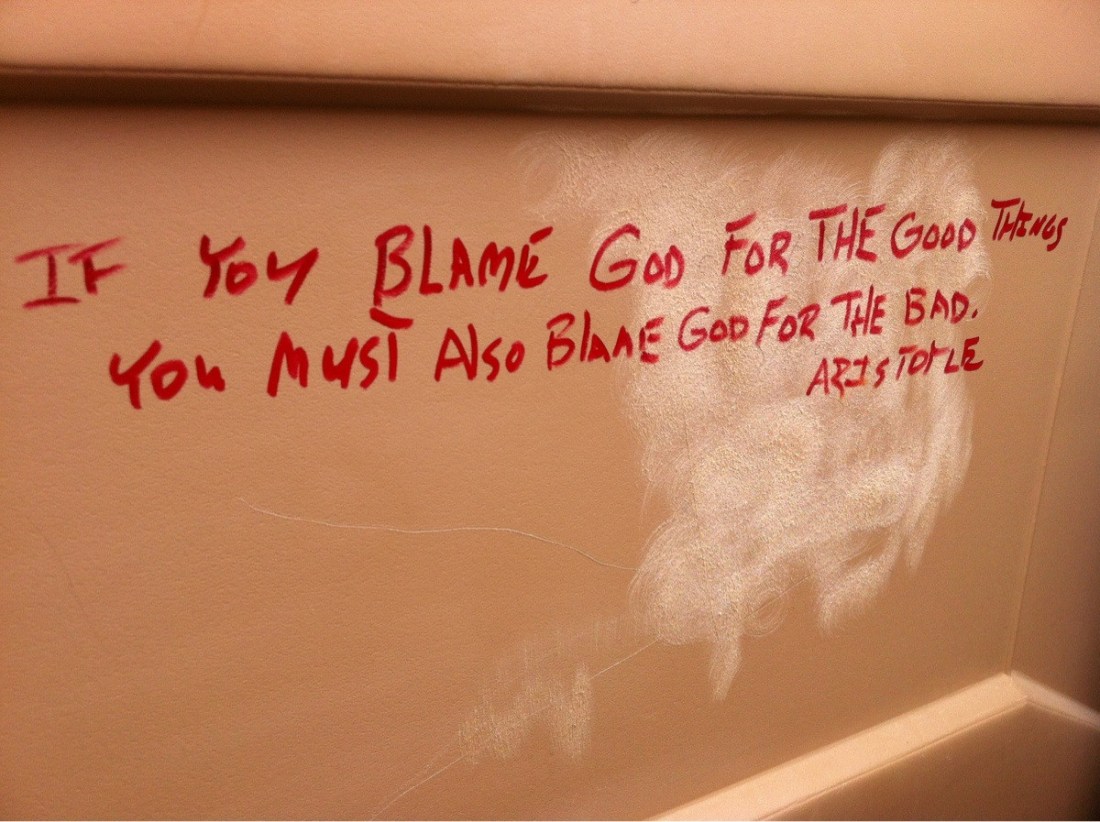 IF YOU BLAME GOD FOR THE GOOD THINGS
YOU MUST ALSO BLAME GOD FOR THE BAD.
ARISTOTLE